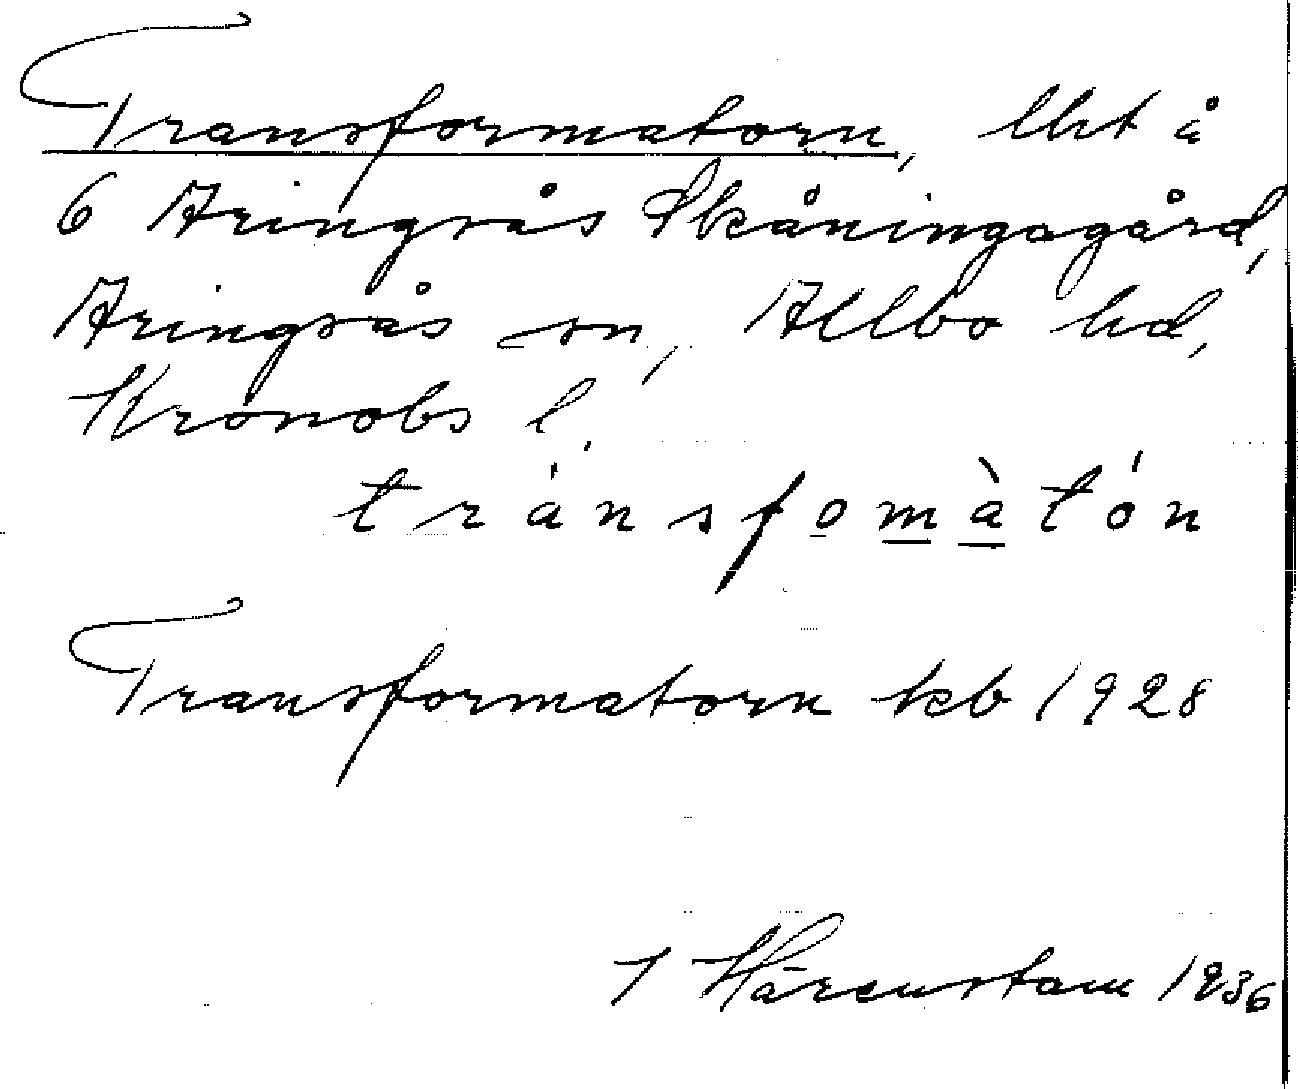 Transformatorn, lht å
6 Aringsås Skåningagård,
Aringsås sn, Allbo hd,
Kronobs l.
tránsfomàtón
Transformatorn kb 1928
Härenstam 1936